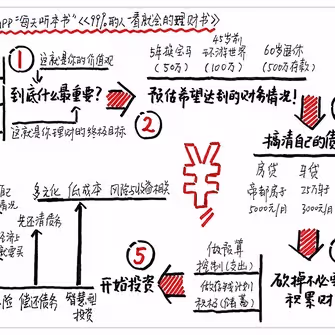 APP"每天听本书"《99%的人一看就会的理财书》
① 这就是你的价值观
到底什么最重要?
这就是你理财的终极目标
②
5年换宝马
(50万)
45岁前
环游世界
(100万)
60岁退休
(500万存款)
预估希望达到的财务情况!
搞清自己的债
房贷
帝都房子
5000元/月
车贷
25万
3000元/月
砍掉不必要
积累财
做预算
控制(支出)
做存钱计划
积极(储蓄)
⑤
开始投资
多元化 低成本 风险与收益相关
先还清债务
偿还债务
智慧型
投资
情况
¥